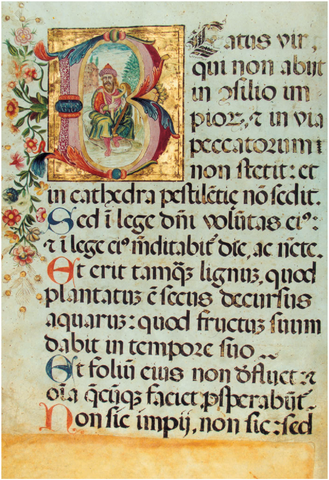 Beatus vir,
qui non abijt
in ɔsilio im
pioꝝ, ⁊ in via
peccatorum
non stetit: et
in cathedra pestilētię nō sedit.
Sed ī lege dn̄i volūtas ei9:
⁊ ī lege ei9 meditabit̄ die, ac nocte.
Et erit tamq̄ lignuꝫ, quod
plantatuꝫ ē secus decursus
aquaruꝫ: quod fructuꝫ suum
dabit in tempore suo
Et foliuꝫ eius non dfluet: ⁊
oīa q̄cūqꝫ faciet ꝓsperabūt̄.
Non sic impij, non sic: sed